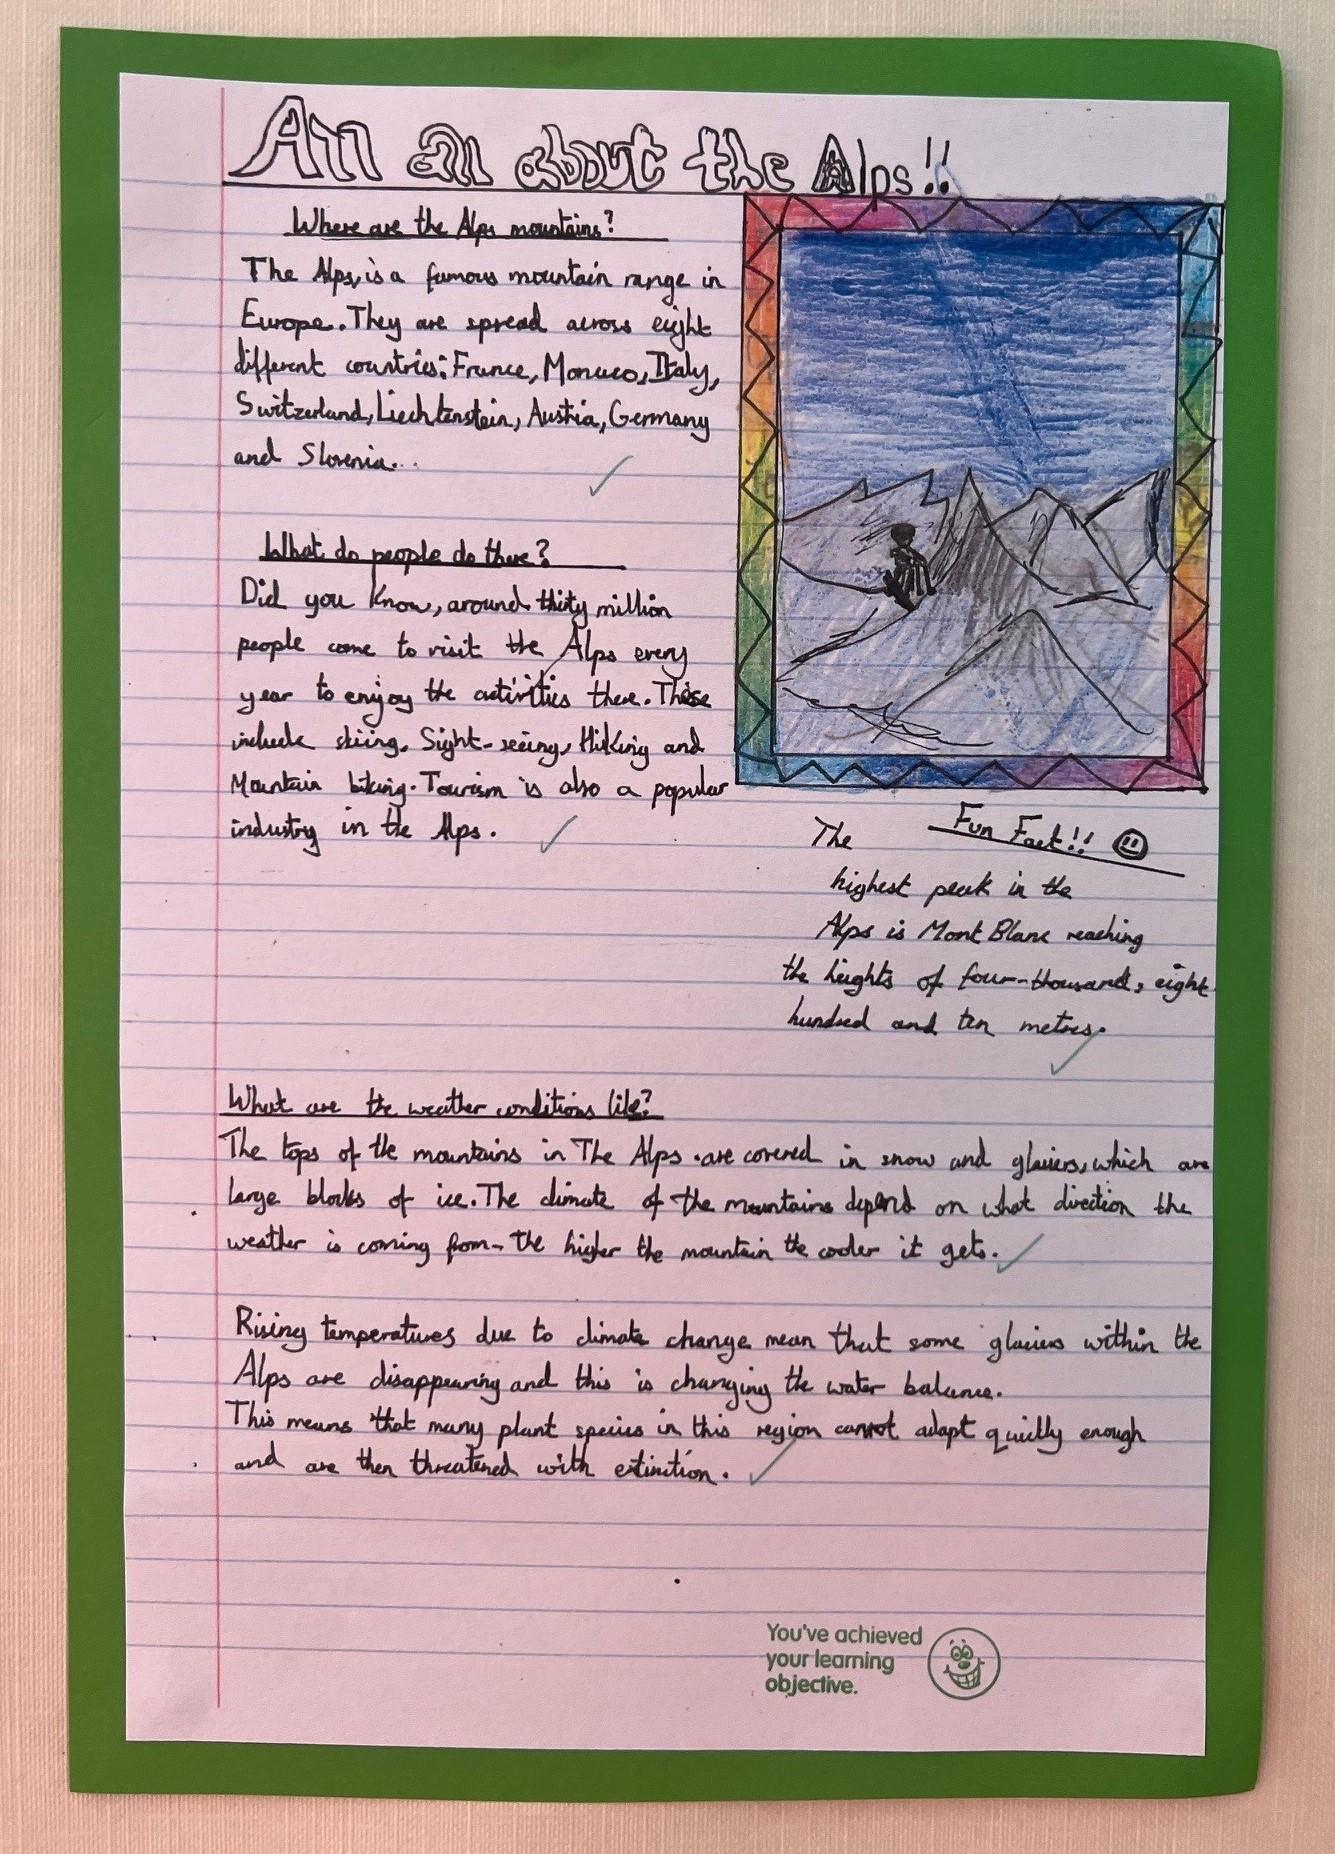 All all about the Alps!!
Where are the Alps mountains?
The Alps, is a famous mountain range in
Europe. They are spread across eight
different countries: France, Monaco, Italy,
Switzerland, Liechtenstein, Austria, Germany
and Slovenia.
What do people do there?
Did you know, around thirty million
people come to visit the Alps every
year to enjoy the activities there. These
include skiing, Sight-seeing, Hiking and
Mountain biking. Tourism is also a popular
industry in the Alps.
Fun Fact!!
The
highest peak in the
Alps is Mont Blanc reaching
the heights of four-thousand, eight
hundred and ten metres.
What are the weather conditions like?
The tops of the mountains in The Alps are covered in snow and glaciers, which are
large blocks of ice. The climate of the mountains depend on what direction the
weather is coming from- the higher the mountain the cooler it gets.
Rising temperatures due to climate change mean that some glaciers within the
Alps are disappearing and this is changing the water balance.
This means that many plant species in this region cannot adapt quickly enough
and are then threatened with extinction.
You've achieved
your learning
objective.